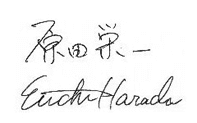 原田栄一
Eiichi Harada